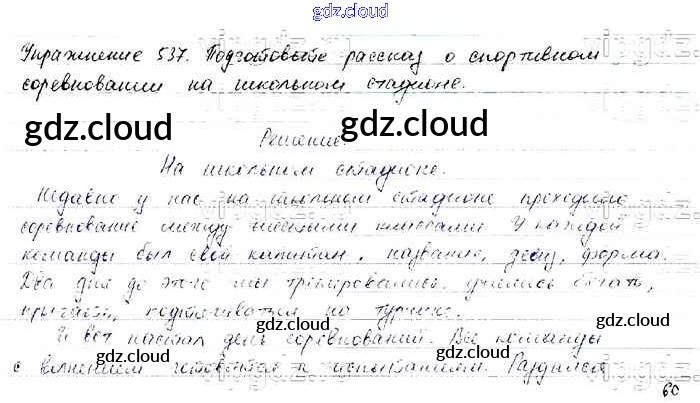 gdz.cloud
Упражнение 537. Подготовьте рассказ о спортивном
соревновании на школьном стадионе.
gdz.cloud gdz.cloud
Решение.
На школьном стадионе.
Недавно у нас на школьном стадионе проходило
соревнование между шестыми классами. У каждой
команды был свой капитан, название, девиз, форма.
gdz.cloud gdz.cloud
Два дня до этого мы тренировались, учились бегать,
прыгать, подтягиваться на турнике.
gdz.cloud gdz.cloud
И вот настал день соревнований. Все команды
gdz.cloud gdz.cloud
с волнением готовятся к испытаниям. Раздался
60